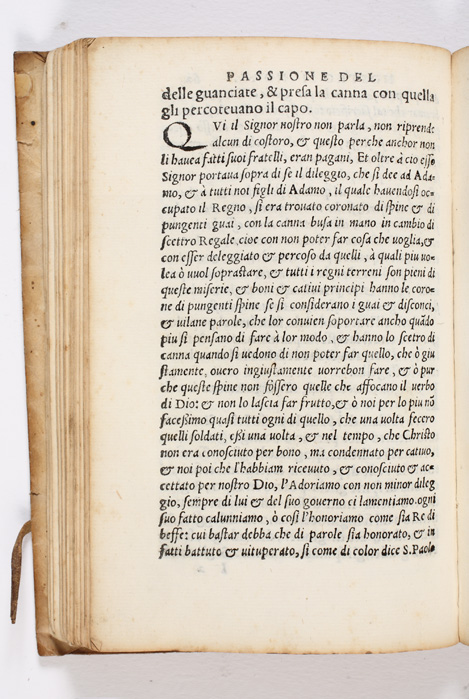 PASSIONE DEL
delle guanciate, & presa la canna con quella
gli percotevano il capo.
QVi il Signor nostro non parla, non riprende
alcun di costoro, & questo perche anchor non
li havea fatti suoi fratelli, eran pagani, Et oltre à cio esso
Signor portava sopra di se il dileggio, che si dee ad Ada-
mo, & à tutti noi figli di Adamo, il quale havendosi oc-
cupato il Regno, si era trovato coronato di spine & di
pungenti guai, con la canna busa in mano in cambio di
scettro Regale, cioe con non poter far cosa che voglia, &
con esser deleggiato & percoso da quelli, à quali piu uo-
lea ò vuol soprastare, & tutti i regni terreni son pieni di
queste miserie, & boni & cativi principi hanno le coro-
ne di pungenti spine se si considerano i guai & disconci,
& uilane parole, che lor convien soportare ancho quãdo
piu si pensano di fare à lor modo, & hanno lo scetro di
canna quando si uedono di non poter far quello, che ò giu
stamente, overo ingiustamente vorrebon fare, & ò pur
che queste spine non fossero quelle che affocano il uerbo
di Dio: & non lo lascia far frutto, & ò noi per lo piu nõ
facessimo quasi tutti ogni di quello, che una volta fecero
quelli soldati, essi una volta, & nel tempo, che Christo
non era conosciuto per bono, ma condennato per cativo,
& noi poi che l'habbiam ricevuto, & conosciuto & ac-
cettato per nostro Dio, l'Adoriamo con non minor dileg
gio, sempre di lui & del suo governo ci lamentiamo. ogni
suo fatto calunniamo, ò cosi l'honoriamo come sia Re di
beffe: cui bastar debba che di parole sia honorato, & in
fatti battuto & uituperato, si come di color dice S. Paolo